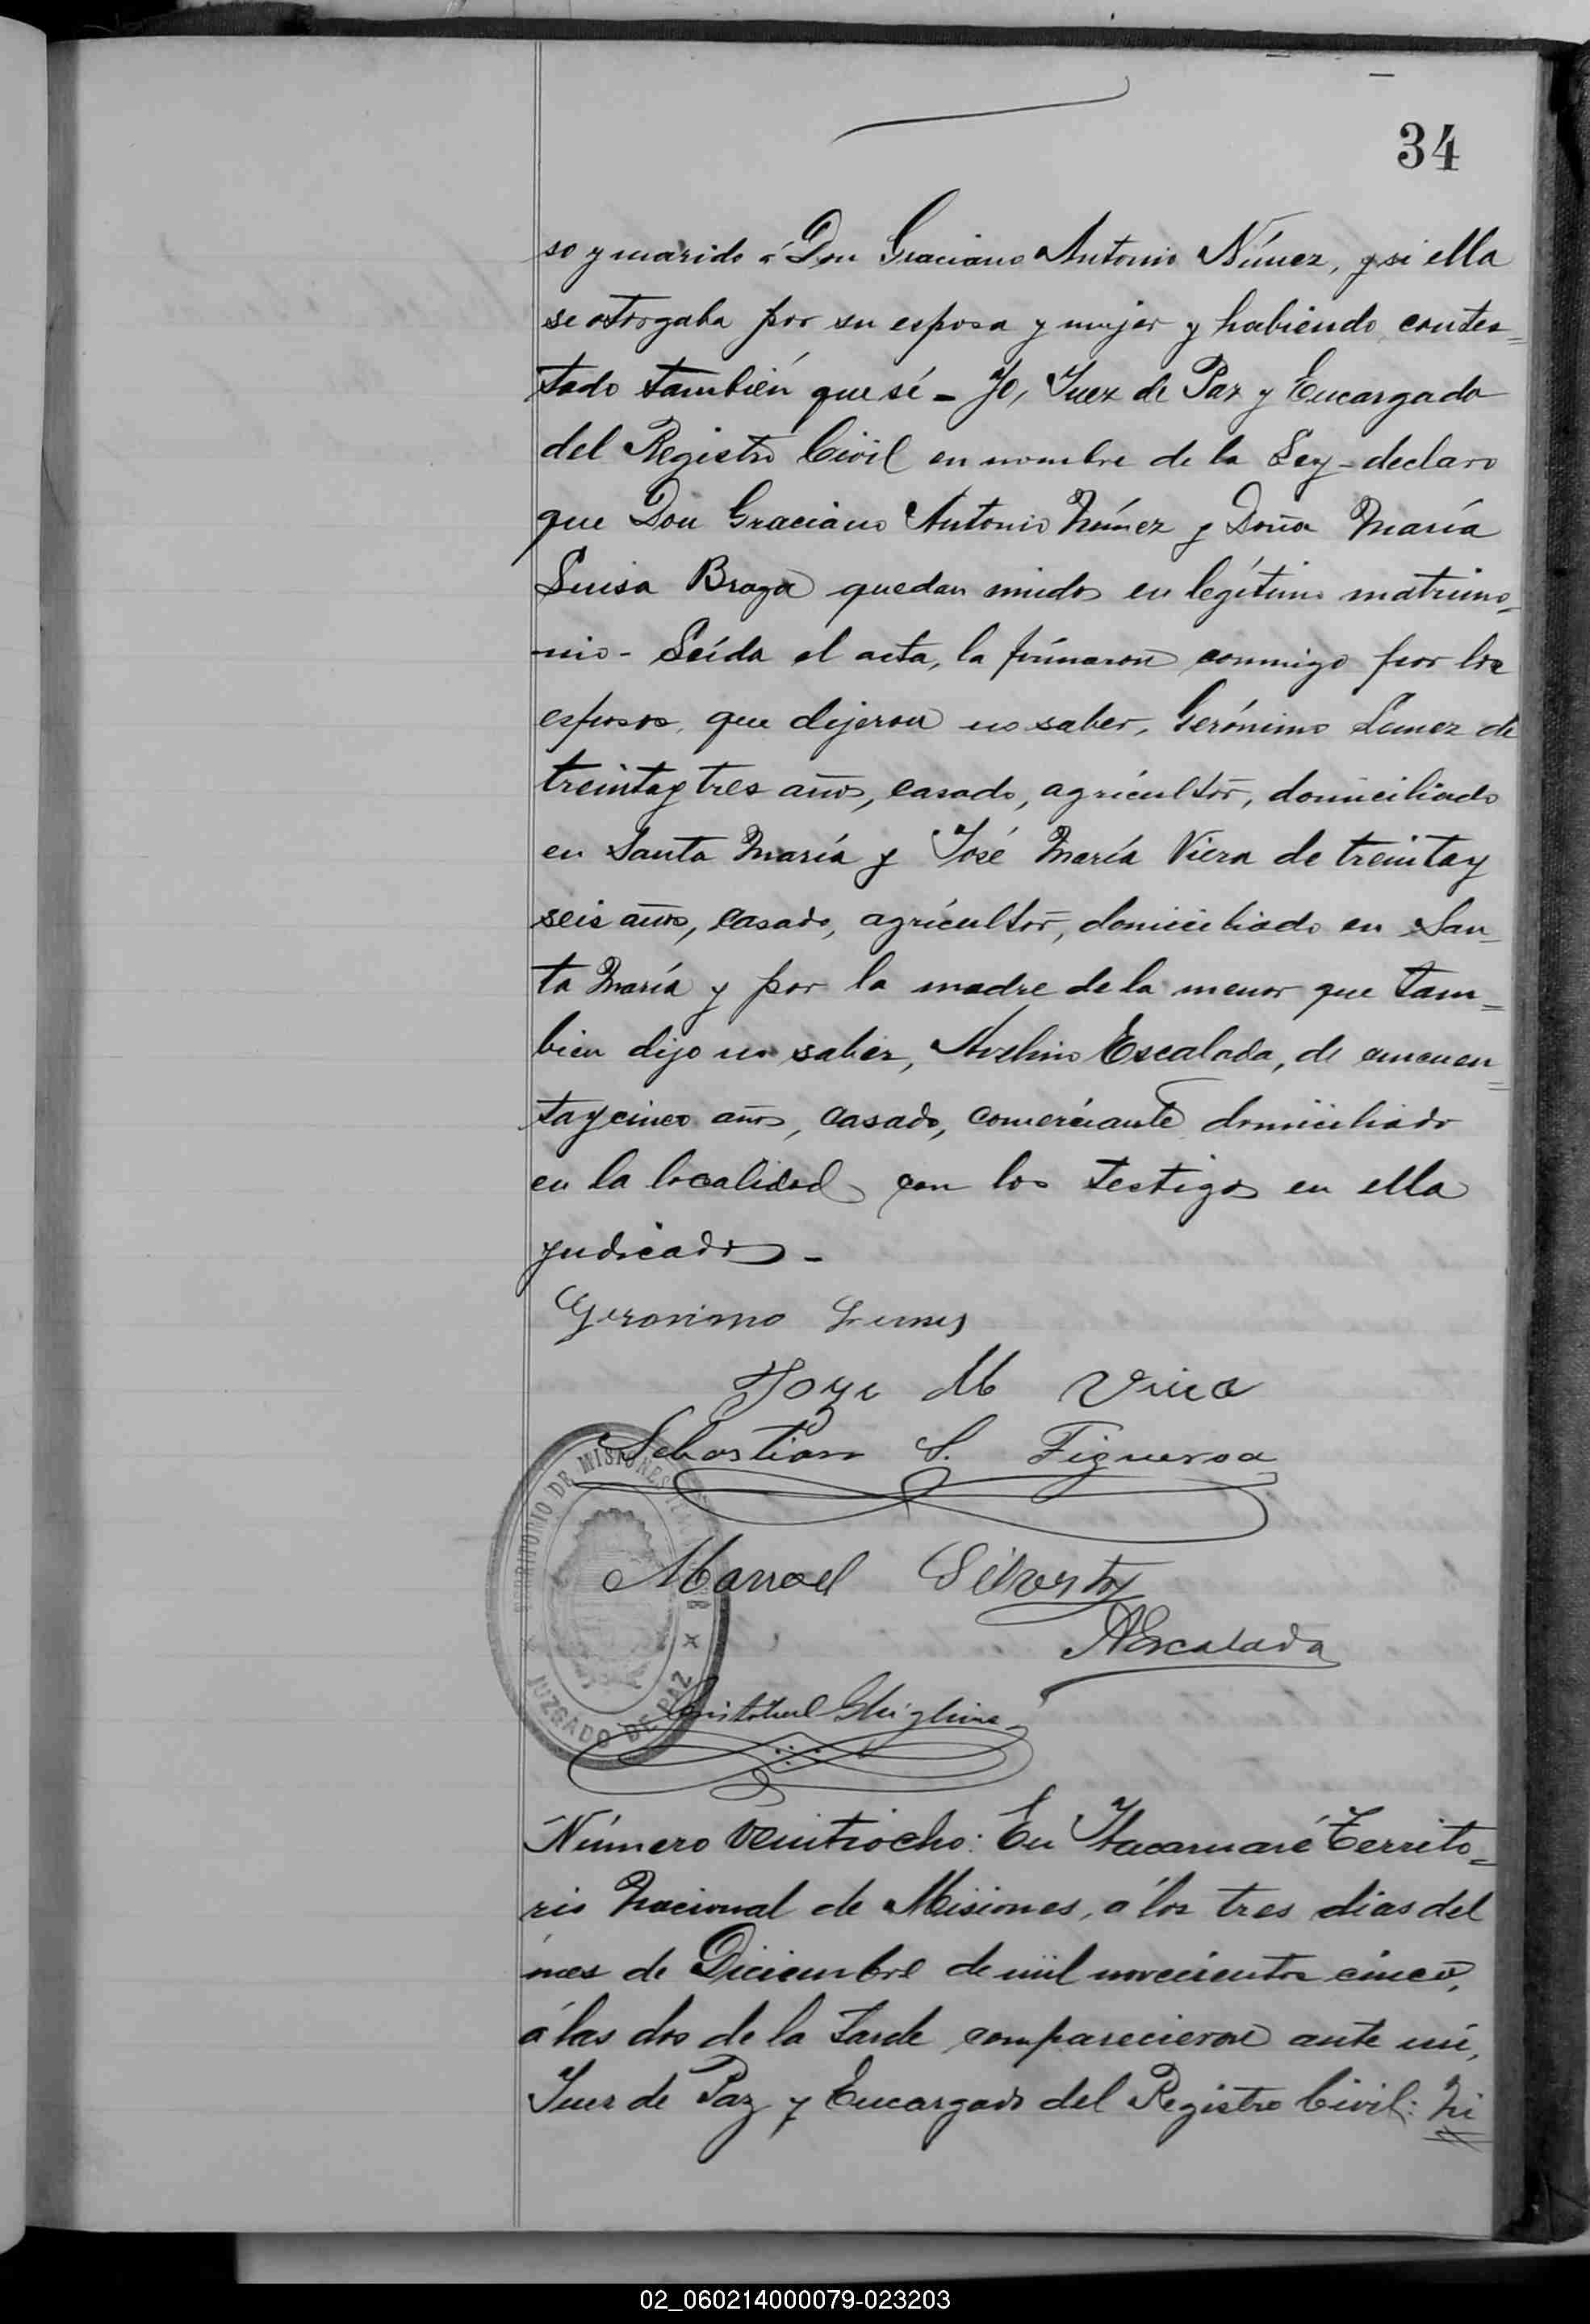 34
so y marido á Don Graciano Antonio Núnez, y si ella
se otorgaba por su esposa y mujer y habiendo contes=
tado también que sí - Yo, Juez de Paz y Encargado
del Registro Civil en nombre de la Ley - declaro
que Don Graciano Antonio Núnez y Doña María
Luisa Braga quedan unidos en legítimo matrimo-
-nio - Leída el acta, la firmaron conmigo por los
esposos, que dijeron no saber, Gerónimo Lemez de
treinta y tres años, casado, agricultor, domiciliado
en Santa María y José María Viera de treinta y
seis años, casado, agricultor, domiciliado en San-
ta María y por la madre de la menor que tam=
bien dijo no saber, Avelino Escalada, de cincuen=
ta y cinco años, casado, comerciante domiciliado
en la localidad con los testigos en ella
yndicados -
Geronimo Lemes
Joze M Viera
Sebastian S. Figueroa
Manoel
AEscalada
Cristobal Ghiglione
TERRITORIO DE MISIONES
JUZGADO DE PAZ
Número veintiocho: En Itacaruaré Territo=
rio Nacional de Misiones, á los tres dias del
mes de Diciembre de mil novecientos cinco,
á las dos de la tarde comparecieron ante mí,
Juez de Paz y Encargado del Registro Civil: Ni
02_060214000079-023203